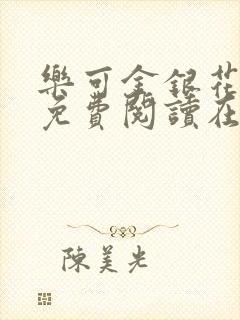 樂可金銀花
免費閱讀在
陳美光